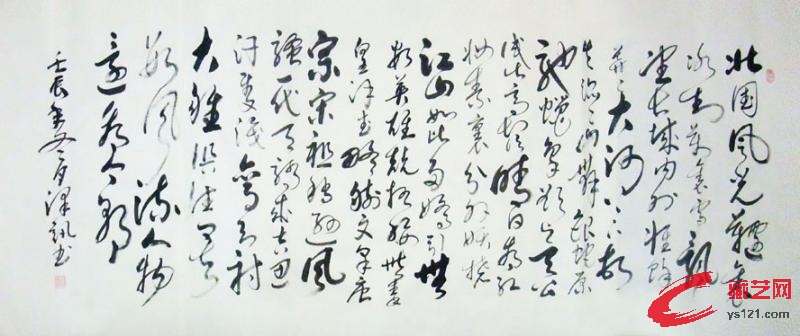 北国风光韆裏
冰封萬裏雪飘
望长城内外惟馀
莽莽大河上下顿
失滔滔山舞银蛇原
驰蜡象欲与天公
试比高须晴日看红
妆素裹分外妖娆
江山如此多娇引無
数英雄竞折腰惜秦
皇汉武略输文采唐
宗宋祖稍逊风
骚一代天骄成吉思
汗隻识弯弓射
大雕俱往矣
数风流人物
还看今朝
壬辰年冬月泽 书
藏艺网
ys121.com